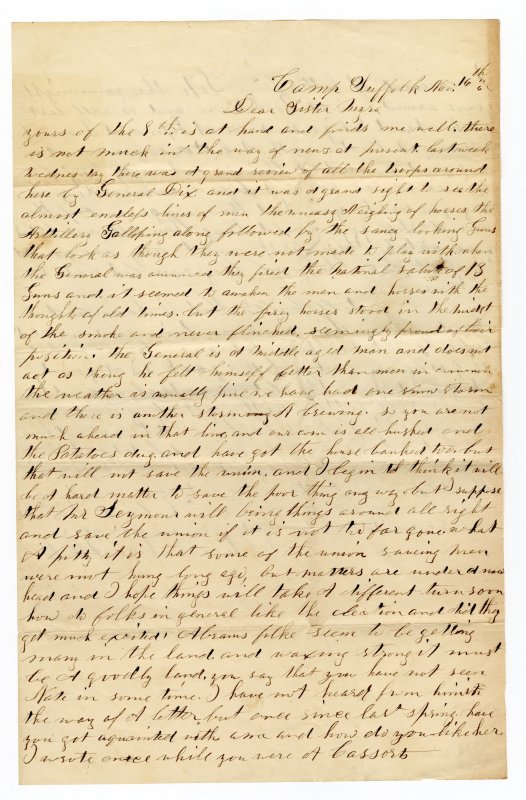 Camp Suffolk Nov. 16th
Dear Sister
yours of the 8th. is at hand and finds me well. there
is not much in the way of news at present. last week
wednesday there was A grand review of all the troops around
here by General Dix and it was A grand sight to see the
almost endless lines of men the uneasy Neighing of horses, the
Galloping along followed by the saucy looking Guns
that look as though they were not made to play with. when
the General was announced they fired the national salute of 13
Guns and it seemed to awaken the men and horses with the
thoughts of old times. but the firey horses stood in the midst
of the smoke and never flinched, seemingly proud of their
position. the General is A middle aged man and does not
act as though he felt himself better than men in common
the weather is usually fine we have had one snow storm
and there is another storm A brewing. so you are not
much ahead in that line, and our corn is all husked and
the Potatoes dug, and have got the house banked too but
that will not save the union, and I begin to think it will
be A hard matter to save the poor thing any way, but I suppose
that Mr Seymour will bring things around all right
and save the union if it is not to far gone. what
A pitty it is that some of the union saveing men
were not hung long ago, but matters are under A new
head and I hope things will take A different turn soon
how do folks in general like the election and did they
get much excited Abrams folks seem to be getting
many in the land and waxing strong it must
be A goodly land, you say that you have not seen
Nate in some time. I have not heard from him in
the way of A letter but once since last spring. have
you got aquainted with and how do you like her
I wrote once while you were at